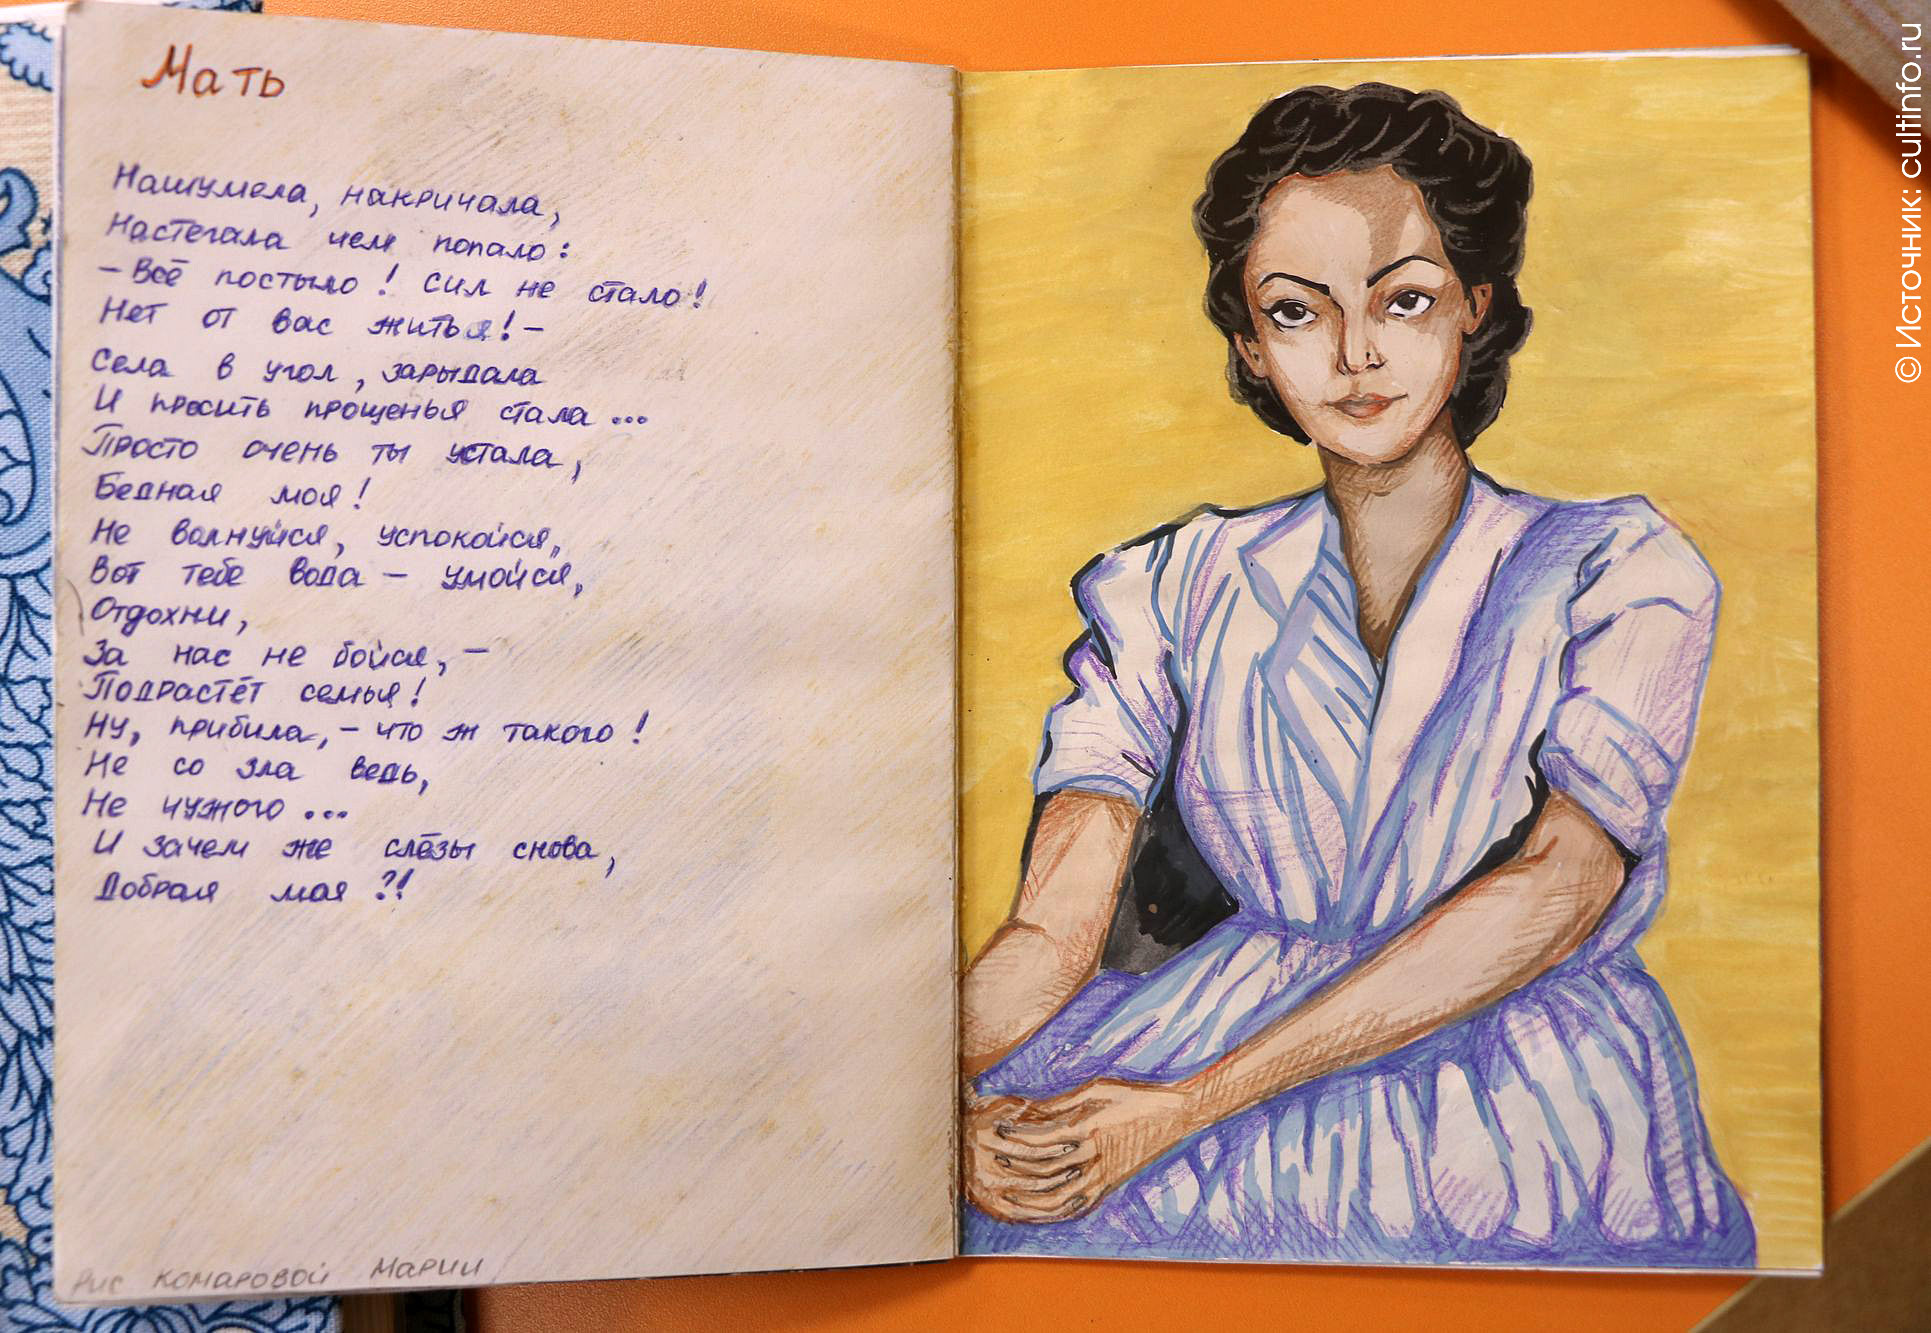 Мать
Нашумела, накричала,
Настегала чем попало:
– Всё постыло! Сил не стало!
Нет от вас житья! –
Села в угол, зарыдала
И просить прощенья стала...
Просто очень ты устала,
Бедная моя!
Не волнуйся, успокойся,
Вот тебе вода – умойся,
Отдохни,
За нас не бойся, –
Подрастёт семья!
Ну, прибила, – что ж такого!
Не со зла ведь,
Не чужого...
И зачем же слёзы снова,
Добрая моя?!
Рис Комаровой Марии
© Источник: cultinfo.ru